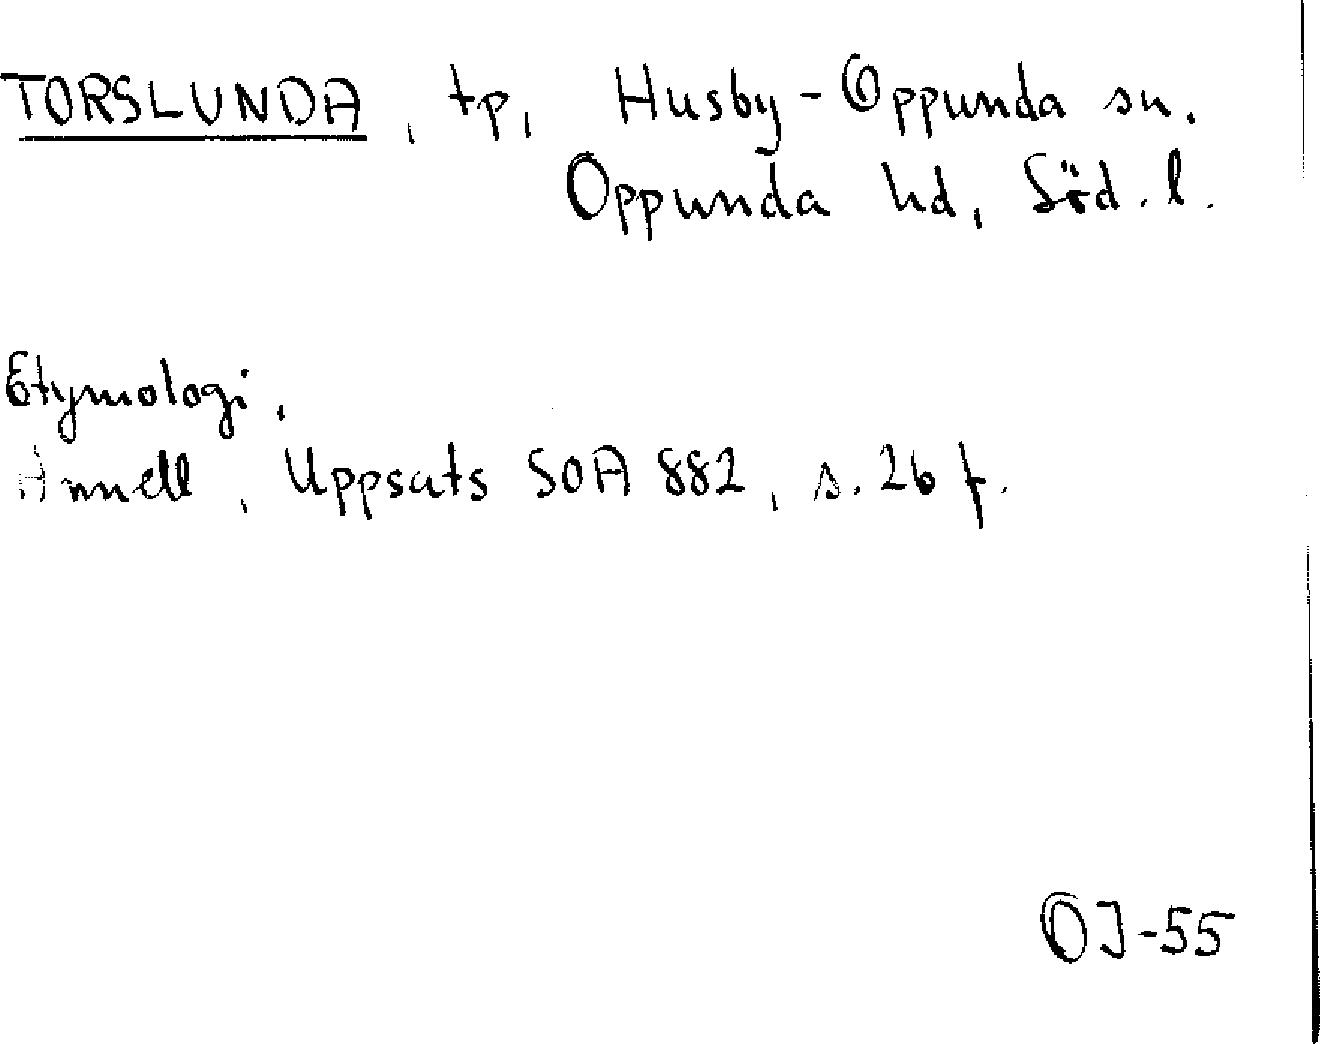 TORSLUNDA, tp, Husby-Oppunda sn.
Oppunda hd, Söd. l.
Etymologi.
Annell, Uppsats SOA 882, s. 26 f.
OJ-55